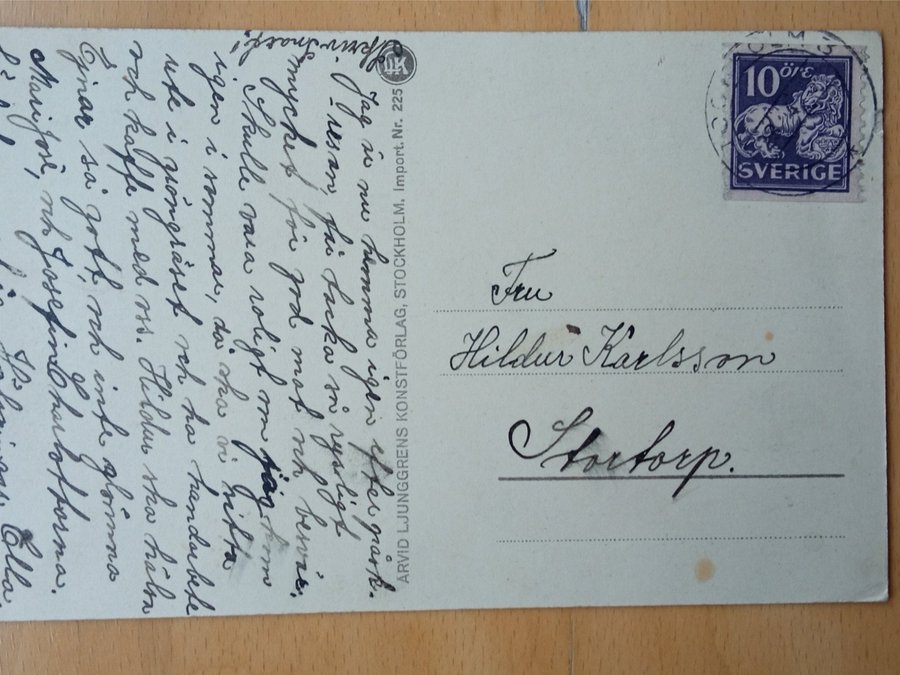 Skriv snart!
Jag är nu hemma igen efter påsk-
resan får tacka så rysligt
mycket för god mat och besvär.
Skulle vara roligt om jag kom
igen i sommar, då ska vi sitta
ute i gröngräset och ha handarbete
och kaffe med oss. Hildur ska hälsa
Ejnar så gott och inte glömma
och Josefin Charlottorna.
Ella.
ARVID LJUNGGRENS KONSTFÖRLAG, STOCKHOLM. Import. Nr. 225
10 öre
SVERIGE
Fru
Hildur Karlsson
Stortorp.